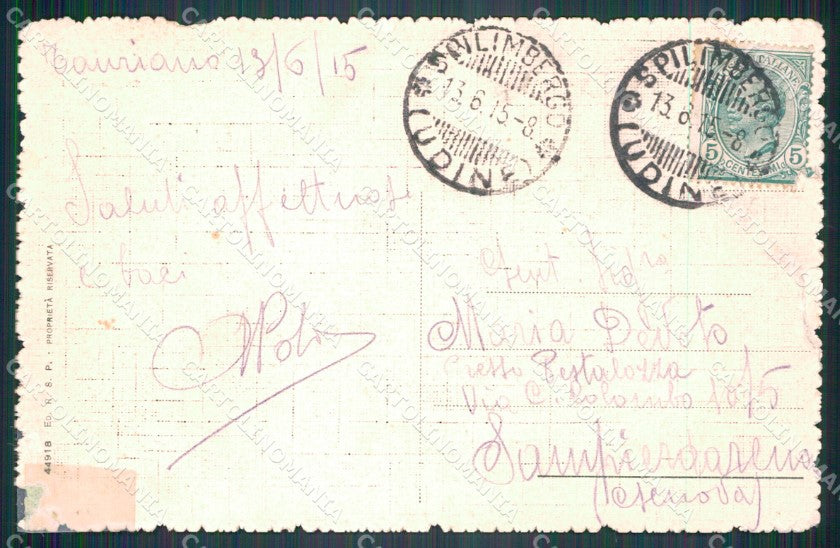 Tauriano 13/6/15
SPILIMBERGO
13.6.15-8
(UDINE)
SPILIMBERGO
13.6.15-8
(UDINE)
ITALIANE
5 CENTESIMI 5
Saluti affettuosi
e baci
Gent. Sig.ra
Maria Devoto
Presso Pestalozza
Via C. Colombo
Sampierdarena
(Genova)
44918 ED. N. S. P. - PROPRIETÀ RISERVATA
CARTOLINOMANIA